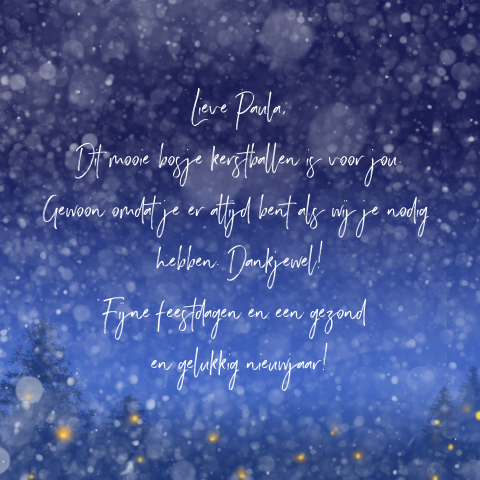 Lieve Paula,
Dit mooie bosje kerstballen is voor jou.
Gewoon omdat je er altijd bent als wij je nodig
hebben. Dankjewel!
Fijne feestdagen en een gezond
en gelukkig nieuwjaar!